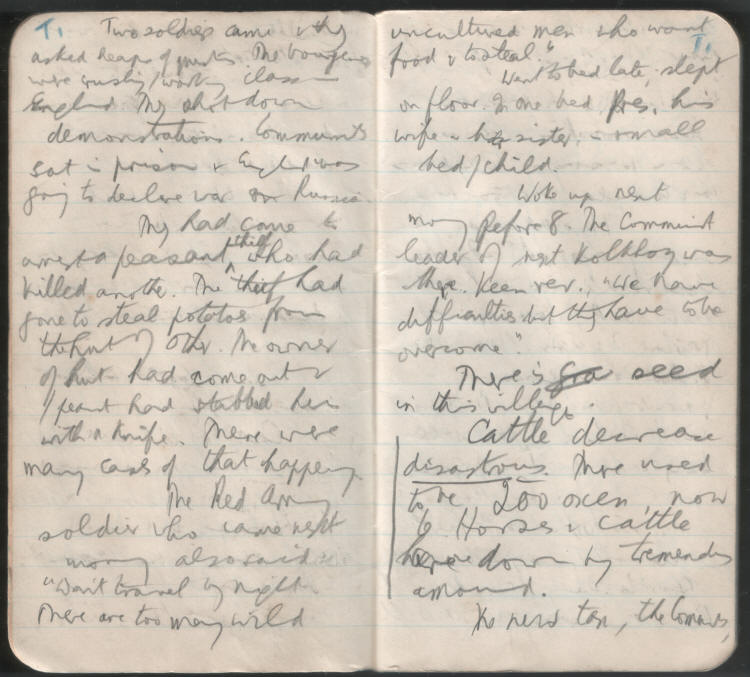 T.
Two soldiers came & they
asked heaps of questns. The bourgeois
were crushing working class in
England. They shot down
demonstrations. Communists
sat in prison & England was
going to declare war on Russia.
They had come to
arrest a peasant thief who had
killed another. The thief had
gone to steal potatos from
the hut of other. The owner
of hut had come out &
peasant had stabbed him
with a knife. There were
many cases of that happeng.
The Red Army
soldier who came next
morng also said:
"Don't travel by night.
There are too many wild
T.
uncultured men who want
food & to steal."
Went to bed late, slept
on floor. In one bed Pres, his
wife & his sister, in small
bed, child.
Woke up next
morng before 8. The Communist
leader of next Kolkhoz was
there. Keen rev. "We have
difficulties but they have to be
overcome".
There is seed
in this village.
Cattle decrease
disastrous. There used
to be 200 oxen, now
6. Horses & cattle
down by tremendous
amount.